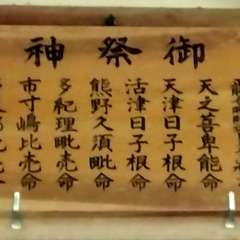 御祭神
天之菩卑能命
天津日子根命
活津日子根命
熊野久須毗命
多紀理毗売命
市寸嶋比売命